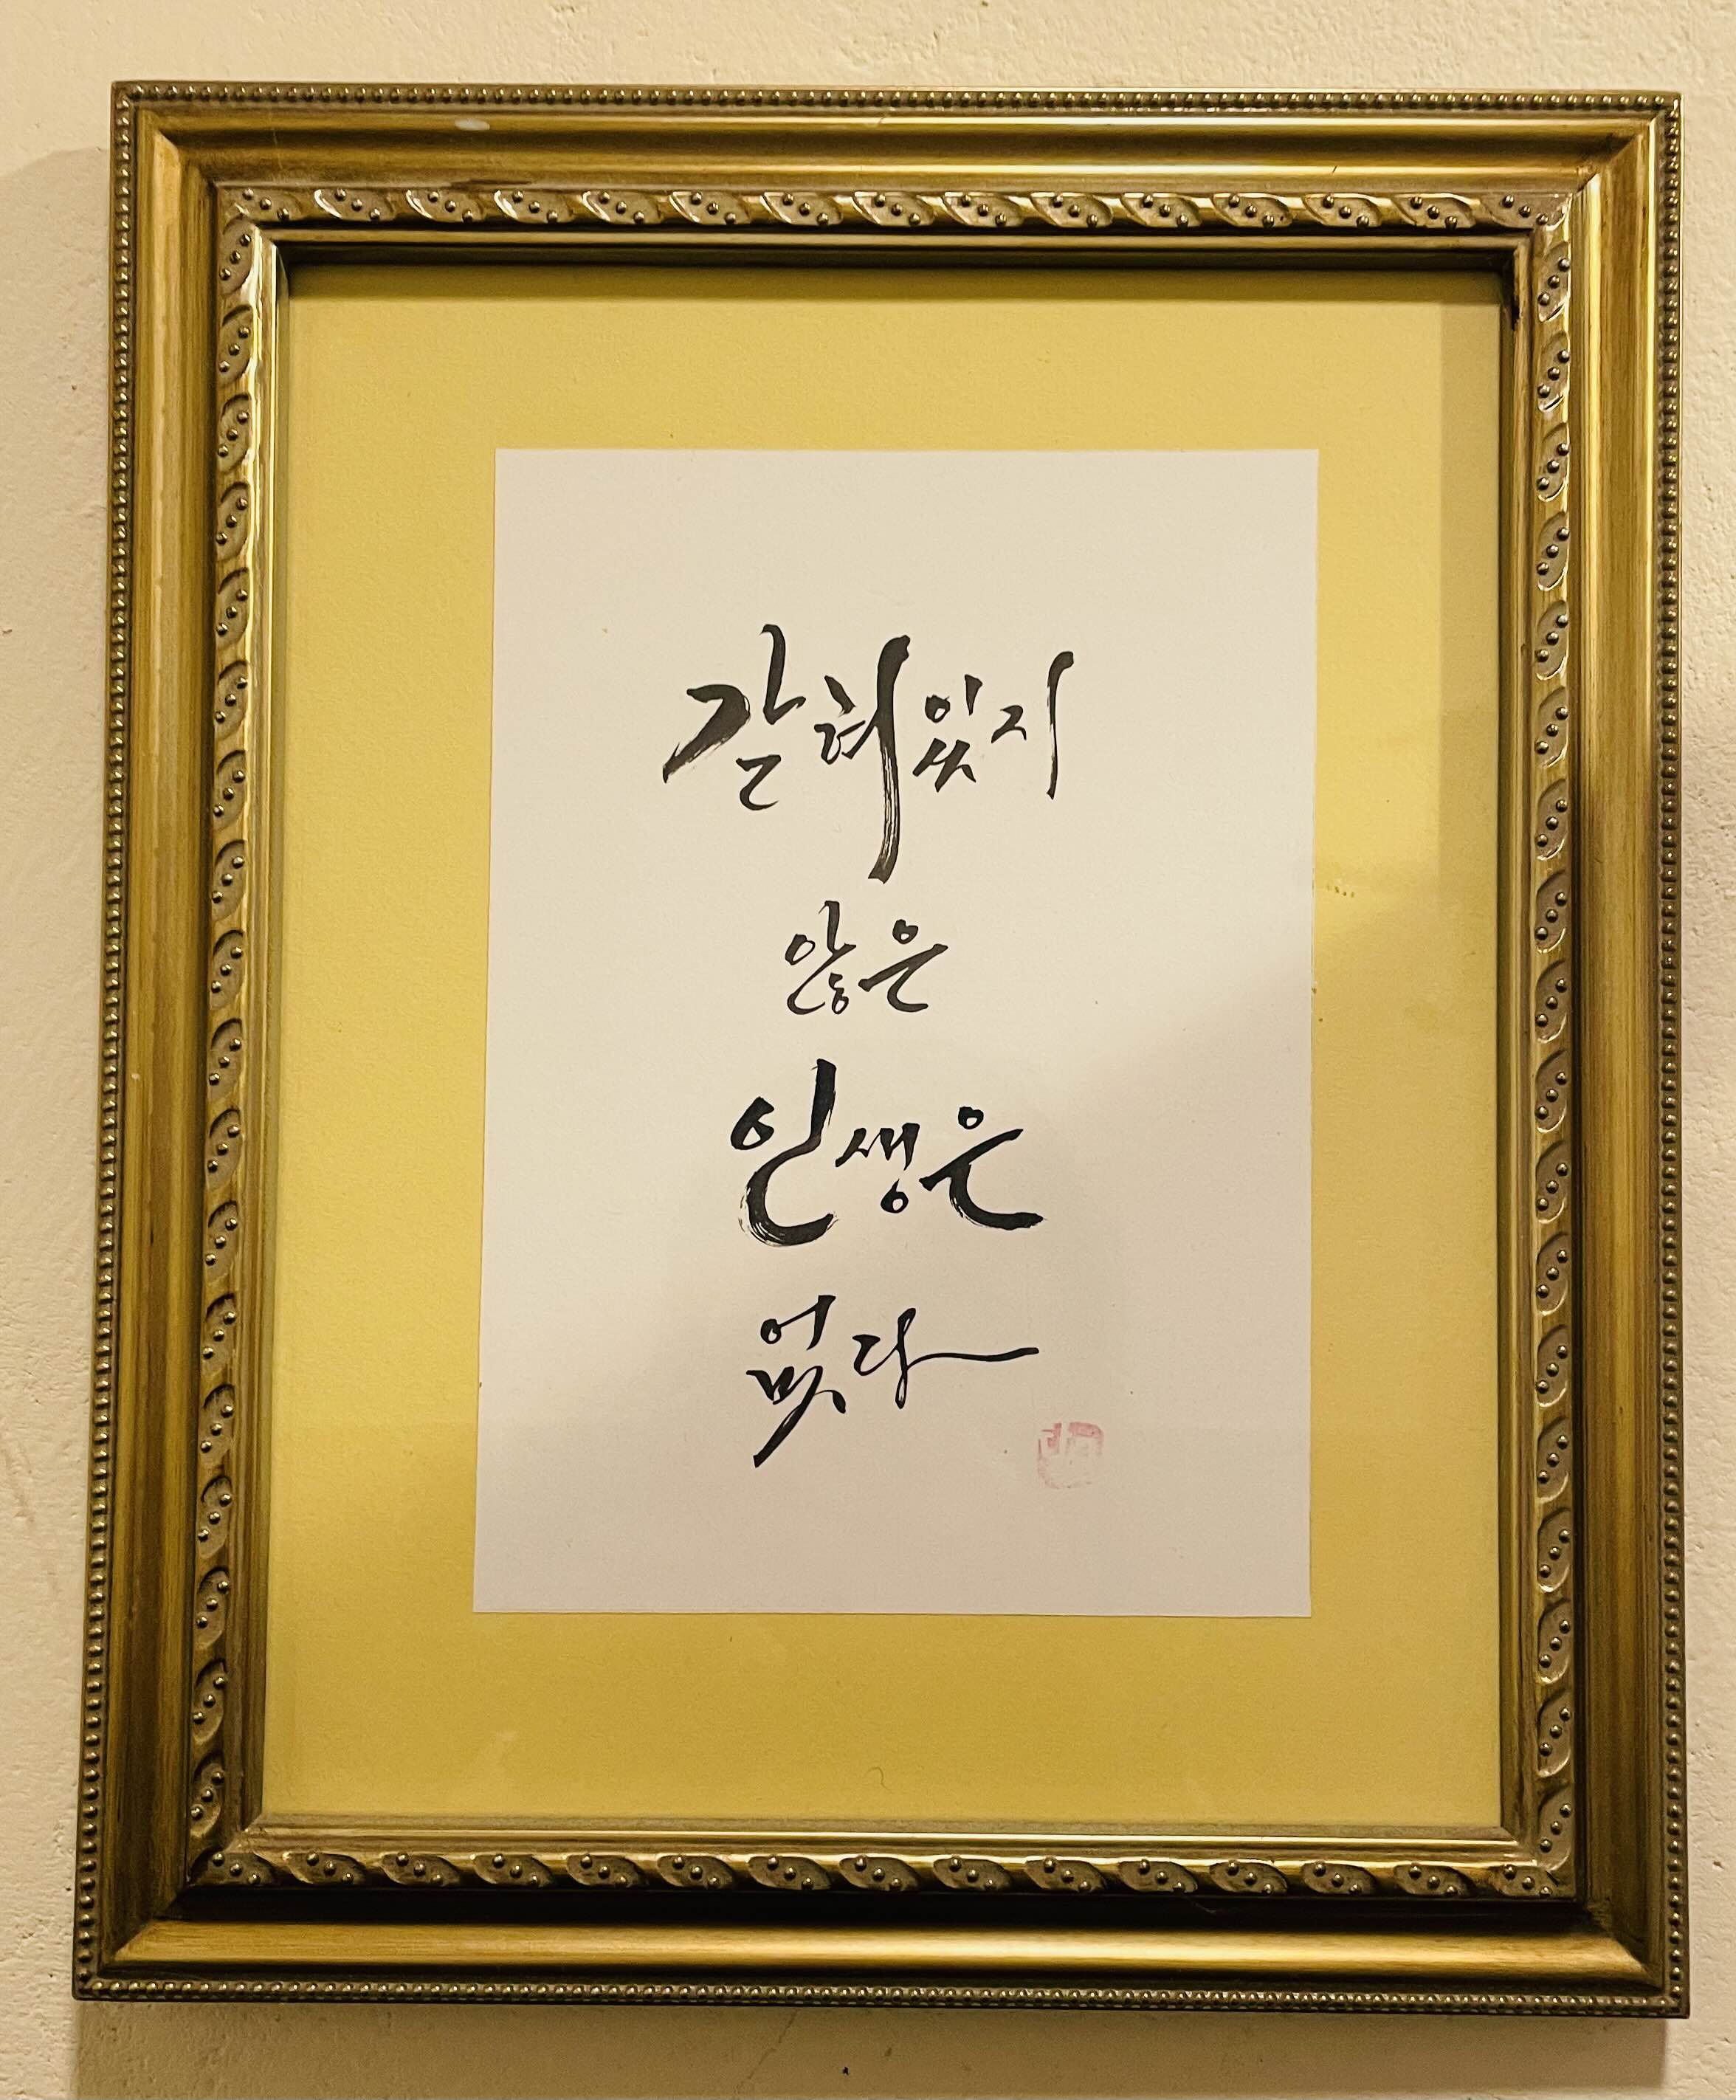 갇혀있지
않은
인생은
없다